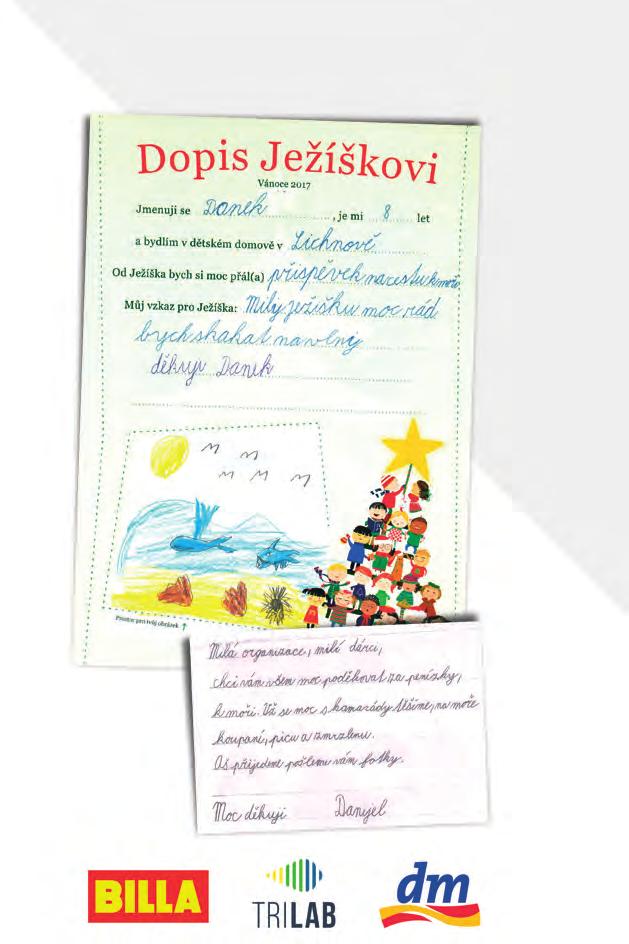 Dopis Ježíškovi
Vánoce 2017
Jmenuji se Danek, je mi 8 let
a bydlím v dětském domově v Lichnově
Od Ježíška bych si moc přál(a) příspěvek na cestu k moři
Můj vzkaz pro Ježíška: Milý ježíšku moc rád
bych skákal na vlny
děkuji Danek
Prostor pro tvůj obrázek
Milá organizace, milí dárci,
chci vám všem moc poděkovat za penízky,
k moři. Už se moc s kamarády těšíme, na moře
koupaní, picu a zmrzlinu.
Aš přijedeme pošleme vám fotky.
Moc děkuji Danyjel
BILLA
TRILAB
dm